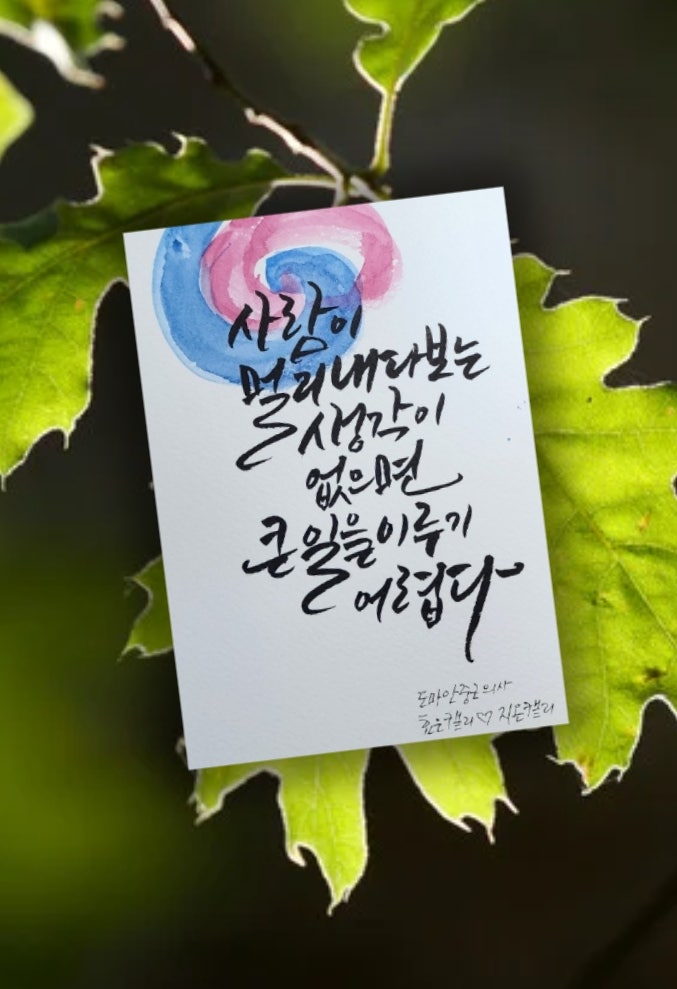 사람이
멀리내다보는
생각이
없으면
큰일을이루기
어렵다
도마안중근의사
캘리♡지은캘리